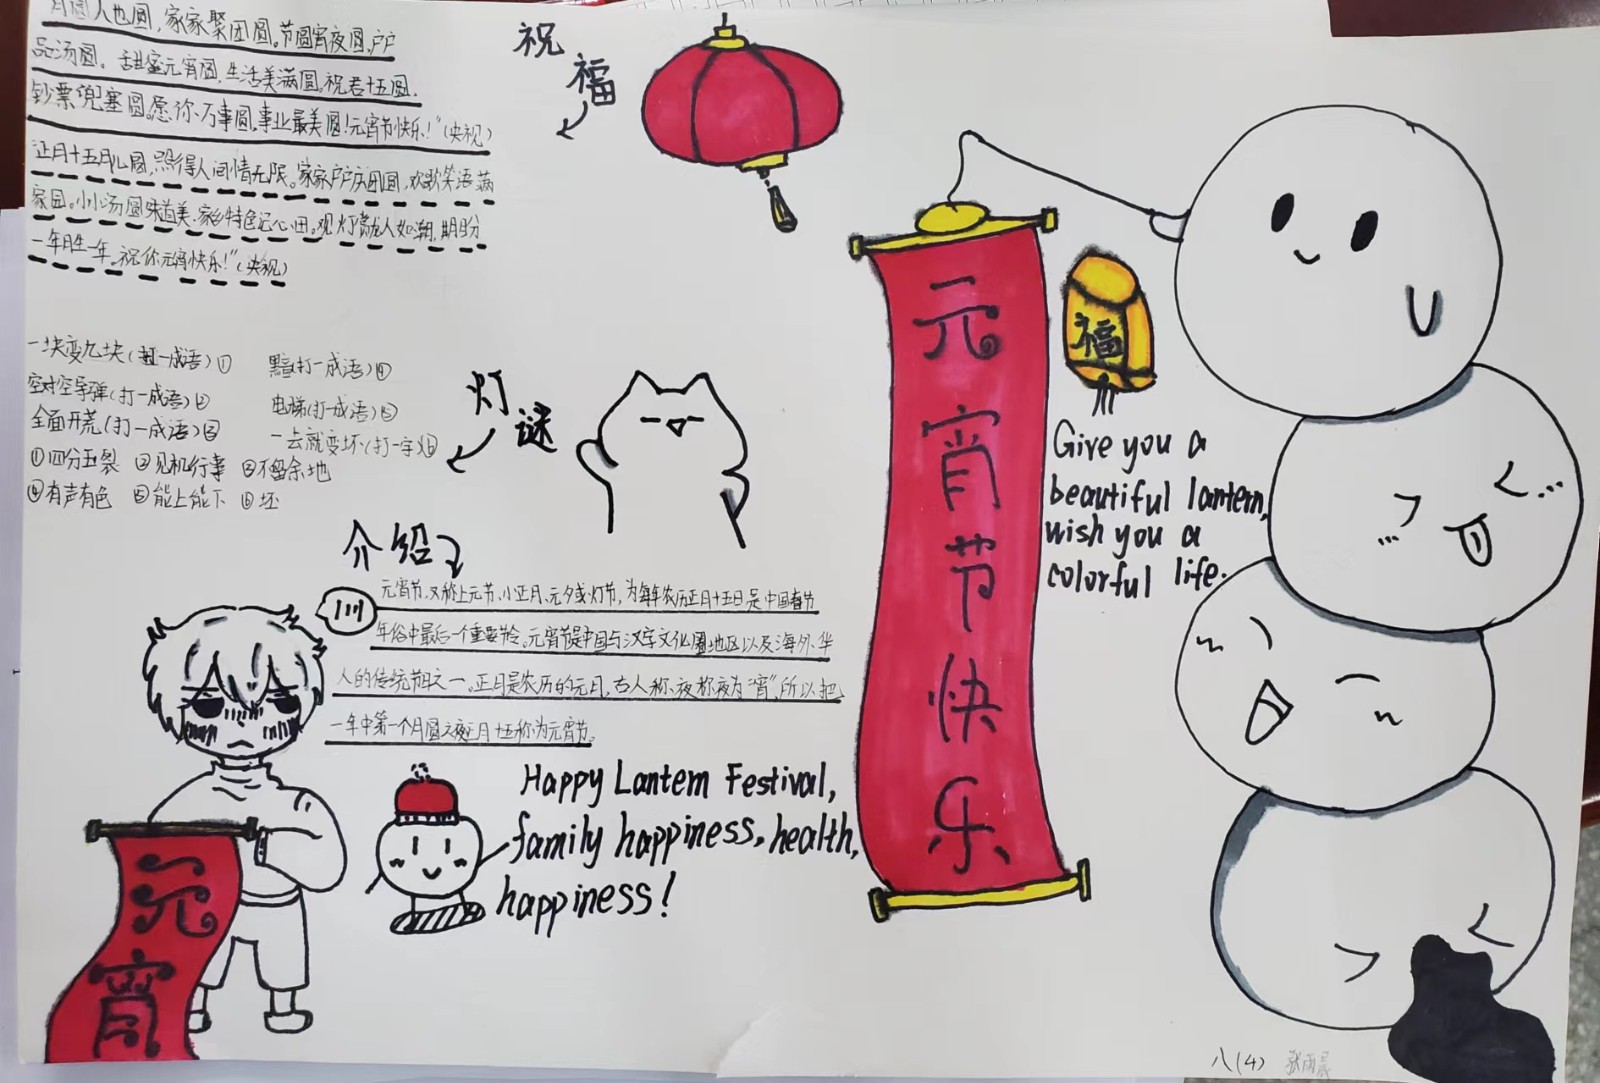 月圆人也圆,家家聚团圆。节圆宵夜圆,户户
品汤圆。甜蜜元宵圆,生活美满圆。祝君十五圆.
钞票兜塞圆。愿你万事圆,事业最美圆!元宵节快乐!"(央视)
正月十五月儿圆,照得人间情无限。家家户户庆团圆,欢歌笑语满
家园。小小汤圆味道美,家乡特色记心田。观灯赏龙人如潮,期盼
一年胜一年。祝你元宵快乐!"(央视)
祝福
福
灯谜
一块变九块(打一成语)①
空对空导弹(打一成语)②
全面开荒(打一成语)③
黯(打一成语)④
电梯(打一成语)⑤
一去就变坏(打一字)⑥
①四分五裂 ②见机行事 ③不留余地
④有声有色 ⑤能上能下 ⑥坯
介绍
元宵节,又称上元节、小正月、元夕或灯节,为每年农历正月十五日是中国春节
年俗中最后一个重要节令。元宵节是中国与汉字文化圈地区以及海外华
人的传统节日之一。正月是农历的元月,古人称、夜称夜为"宵",所以把
一年中第一个月圆之夜正月十五称为元宵节。
元宵节快乐
Give you a
beautiful lantern,
wish you a
colorful life.
Happy Lantern Festival,
family happiness, health,
happiness!
元宵
八(4) 张雨晨